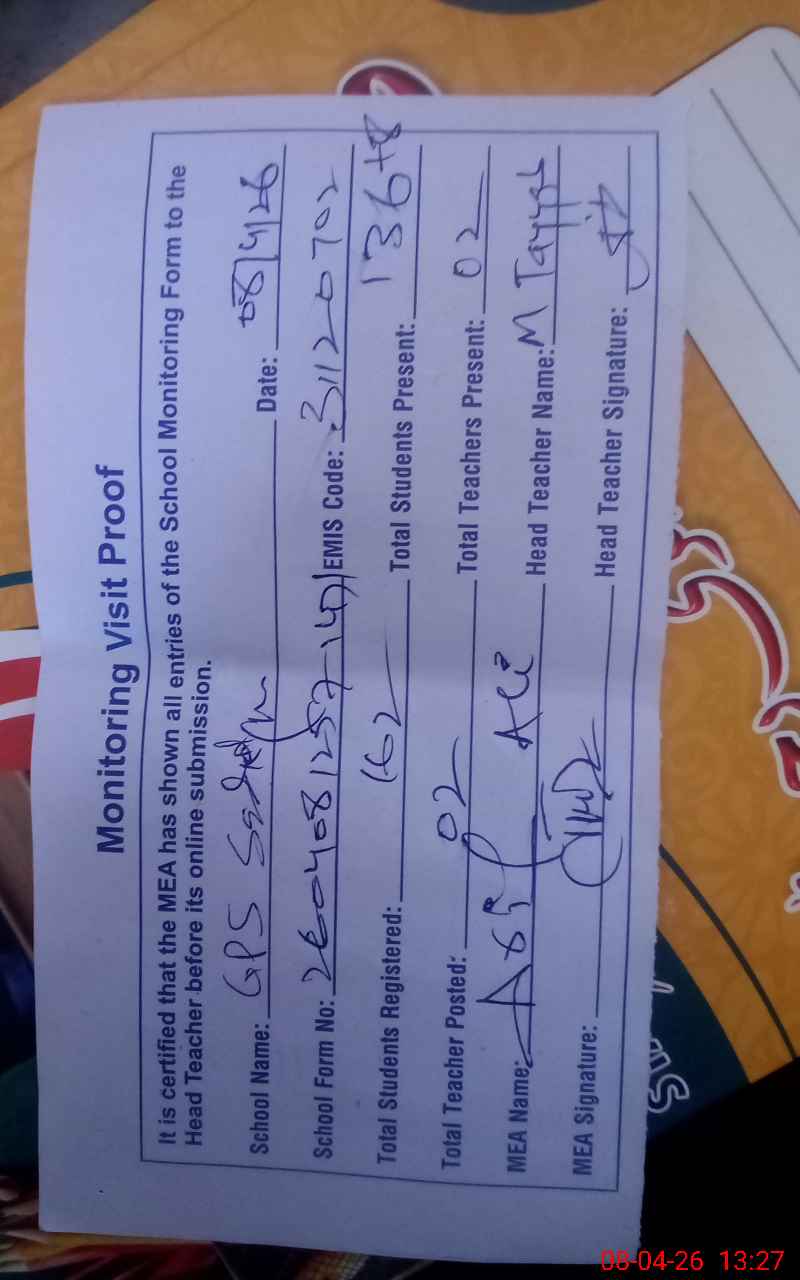 Monitoring Visit Proof
It is certified that the MEA has shown all entries of the School Monitoring Form to the
Head Teacher before its online submission.
School Name: GPS Date: 08/4/26
School Form No: EMIS Code: 31120702
Total Students Registered: 162 Total Students Present: 136+8
Total Teacher Posted: 02 Total Teachers Present: 02
MEA Name: Ali Head Teacher Name: M Tayyab
MEA Signature: Head Teacher Signature:
08-04-26 13:27